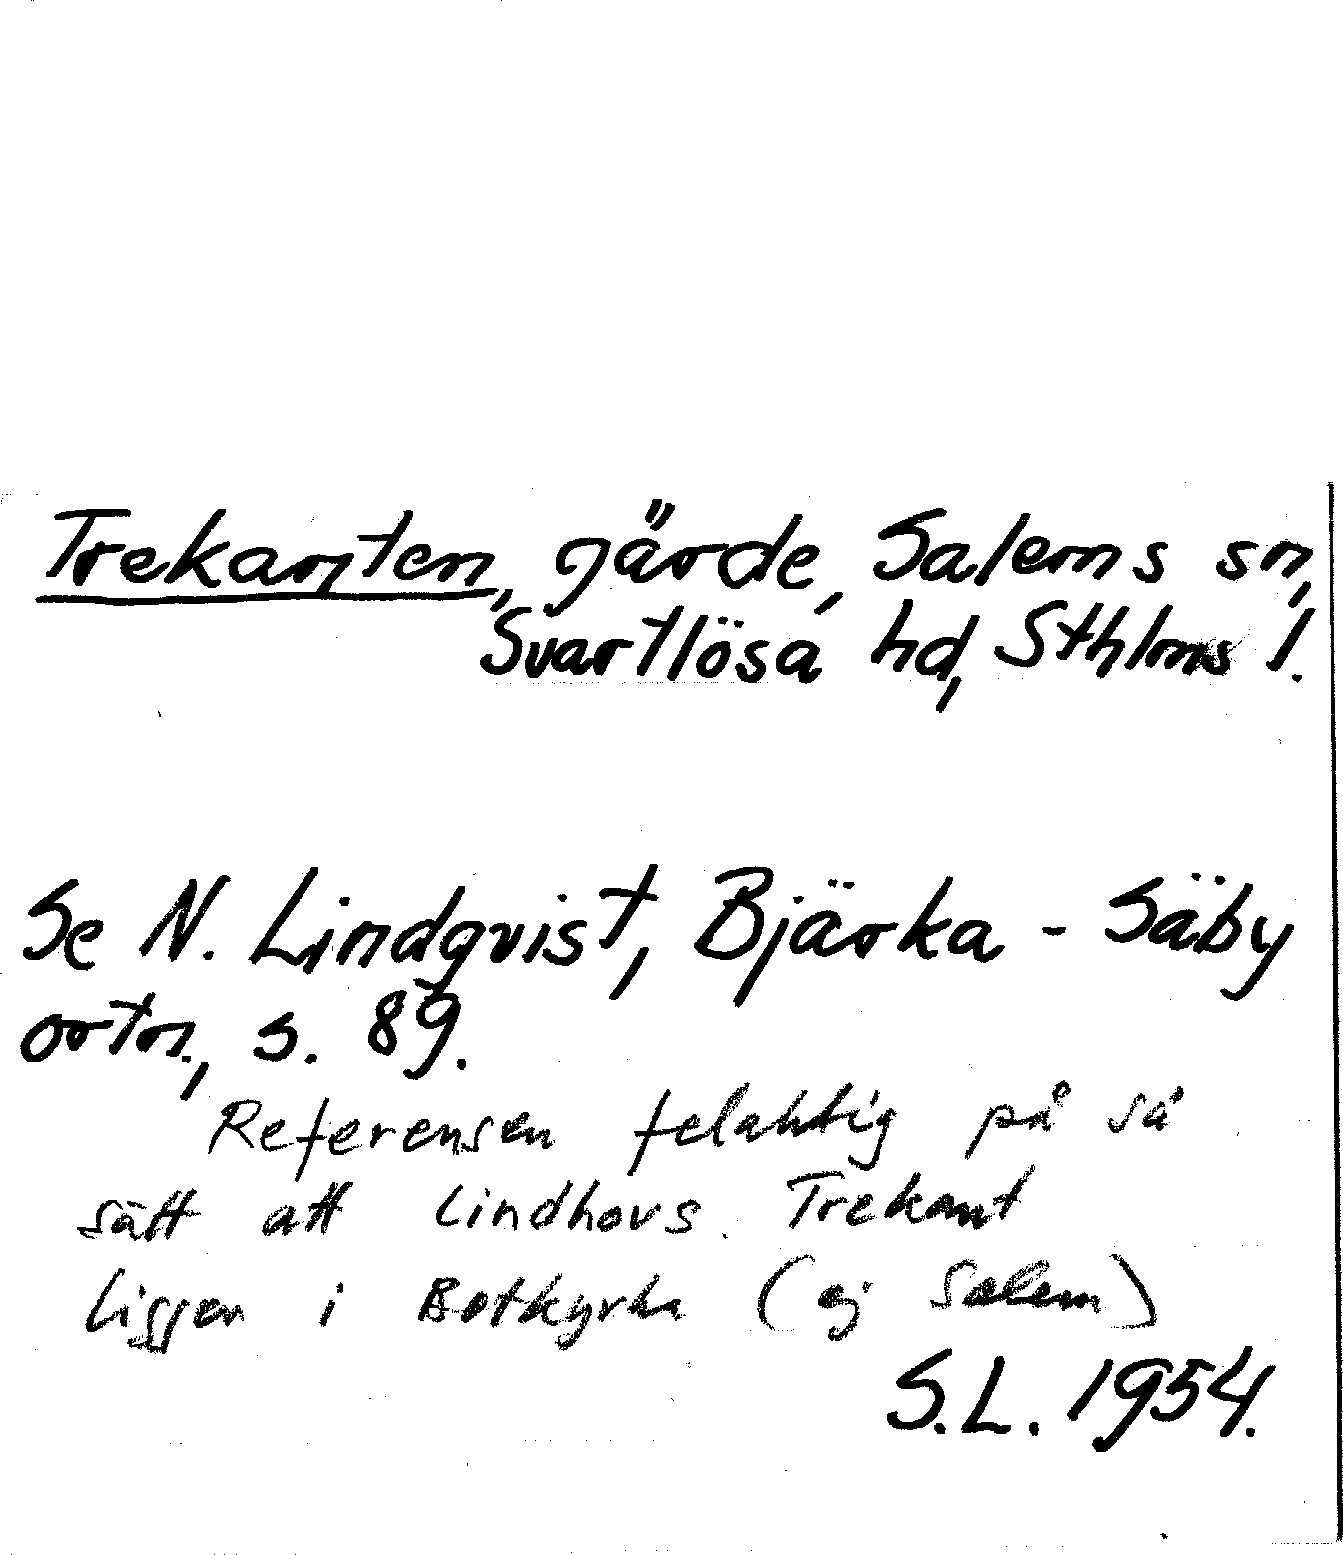 Trekanten, gärde, Salems sn,
Svartlösa hd, Sthlms l.
Se N. Lindqvist, Bjärka-Säby
ortn., s. 89.
Referensen felaktig på så
sätt att Lindhovs Trekant
ligger i Botkyrka (ej Salem)
S.L. 1954.